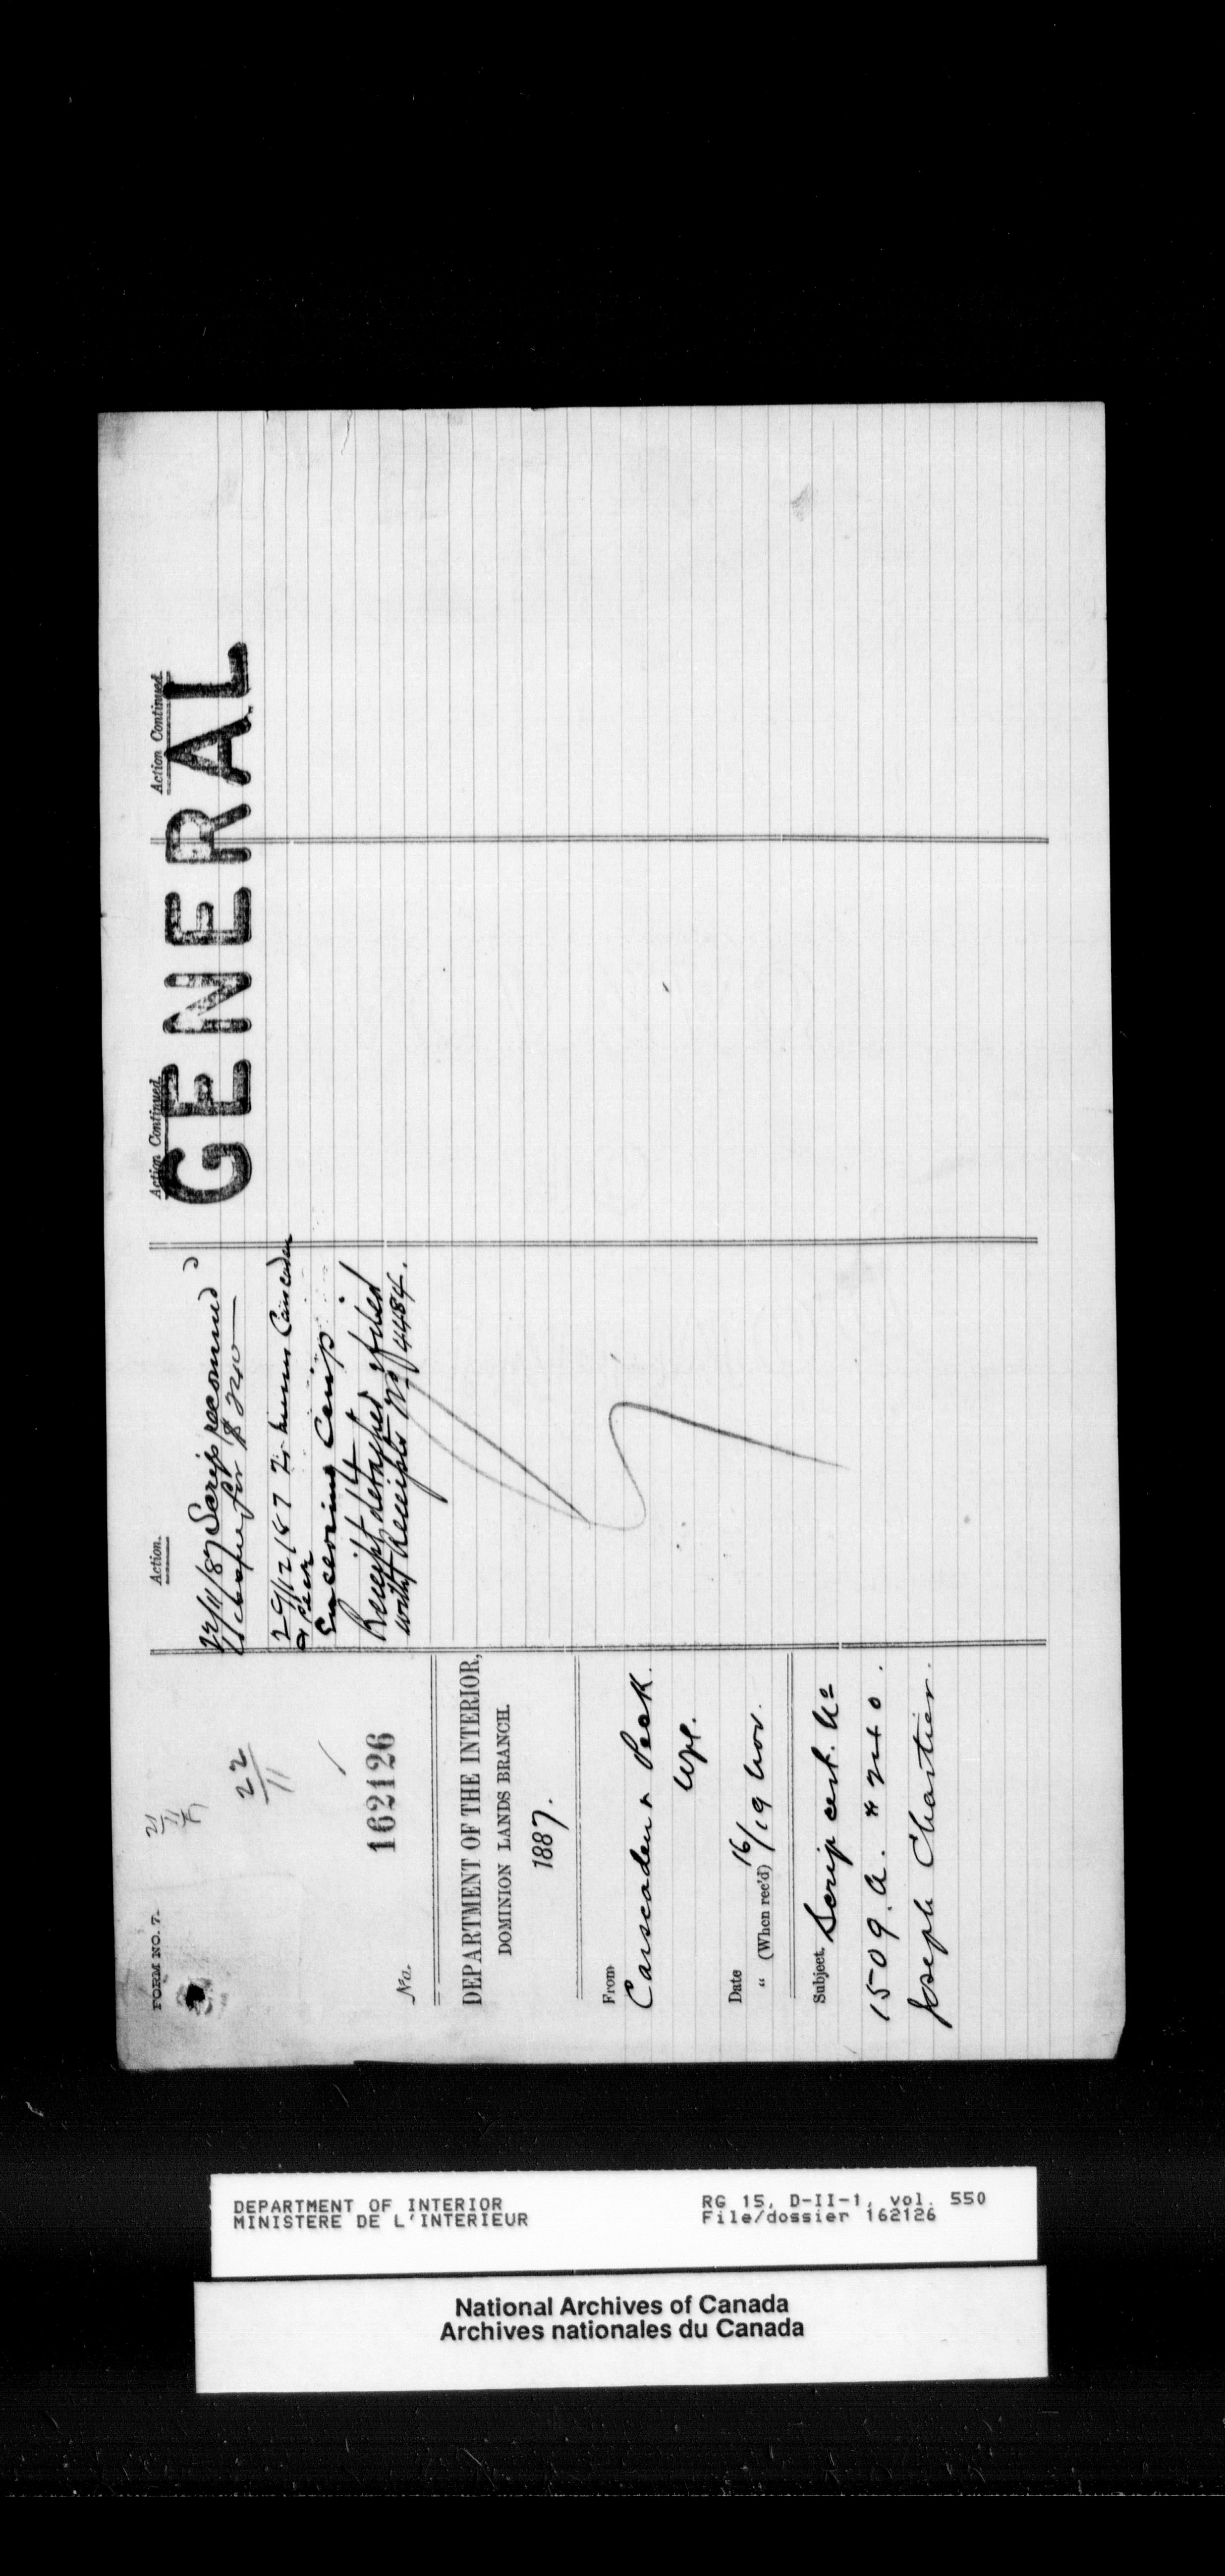 FORM NO. 7.
21
11
22
11
No. 162126
DEPARTMENT OF THE INTERIOR,
DOMINION LANDS BRANCH.
1887.
From
Carscaden & Peck.
Wpg.
Date 16/
" (When rec'd) 19 Nov.
Subject. Scrip cert. No
1509. A. $240.
Joseph Chartier.
Action.
22/11/87 Scrip
for $240
29/12/87 To Carscaden
& Peck
Enclosing
Receipt detached & filed
with Receipts No 4484.
Action Continued.
Action Continued.
GENERAL
DEPARTMENT OF INTERIOR
MINISTERE DE L'INTERIEUR
RG 15, D-II-1, vol. 550
File/dossier 162126
National Archives of Canada
Archives nationales du Canada